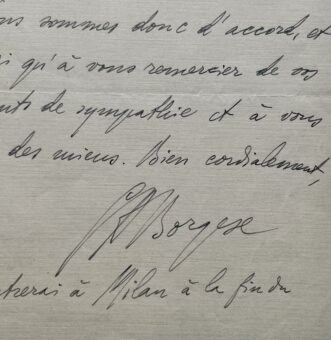 us sommes donc d'accord, et
i qu'à vous remercier de vos
nts de sympathie et à vous
des miens. Bien cordialement,
GABorgese
trerai à Milan à la fin du